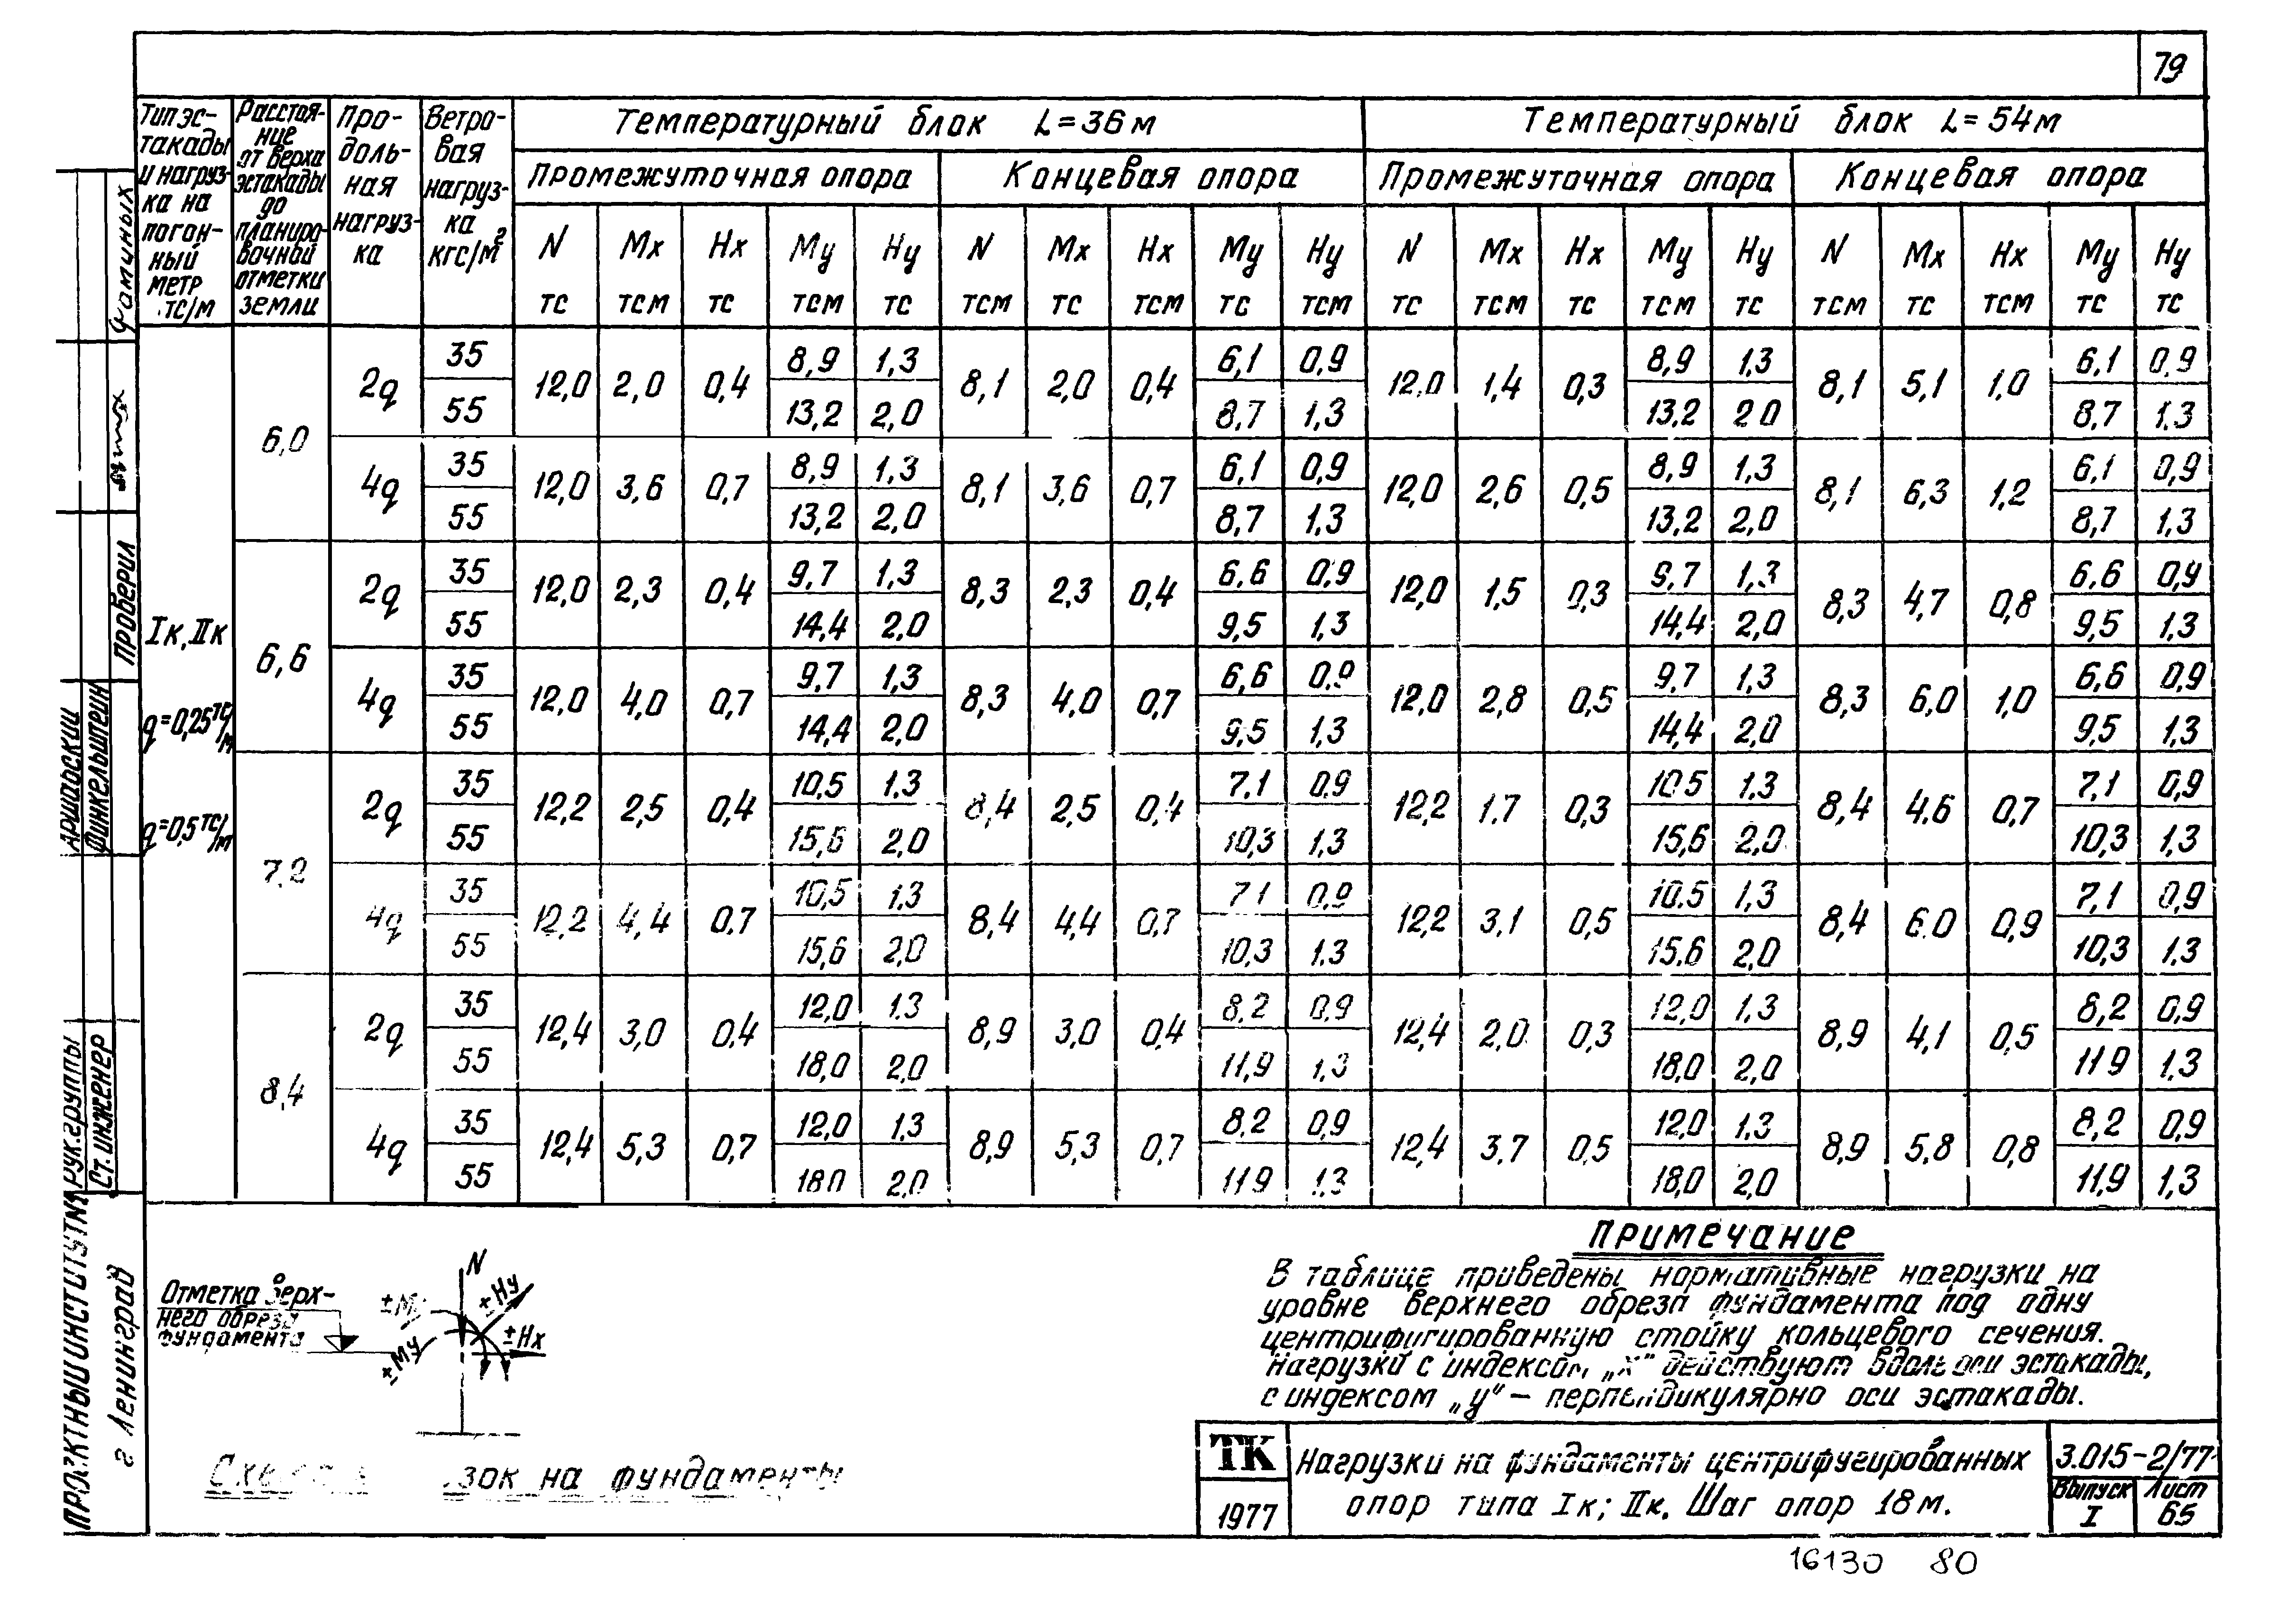 79
Тип эс-
такады
и нагруз-
ка на
погон-
ный
метр
тс/м
Расстоя-
ние
от верха
эстакады
до
планиро-
вочной
отметки
земли
Про-
доль-
ная
нагруз-
ка
Ветро-
вая
нагруз-
ка
кгс/м²
Температурный блок L=36м
Температурный блок L=54м
Промежуточная опора Концевая опора Промежуточная опора Концевая опора
N Mx Hx My Hy N Mx Hx My Hy N Mx Hx My Hy N Mx Hx My Hy
тс тсм тс тсм тс тсм тс тсм тс тсм тс тсм тс тсм тс тсм тс тсм тс тс
Iк, IIк
q=0,25 тс/м
q=0,5 тс/м
6,0
2q 35 12,0 2,0 0,4 8,9 1,3 8,1 2,0 0,4 6,1 0,9 12,0 1,4 0,3 8,9 1,3 8,1 5,1 1,0 6,1 0,9
55 13,2 2,0 8,7 1,3 13,2 2 0 8,7 1,3
4q 35 12,0 3,6 0,7 8,9 1,3 8,1 3,6 0,7 6,1 0,9 12,0 2,6 0,5 8,9 1,3 8,1 6,3 1,2 6,1 0,9
55 13,2 2,0 8,7 1,3 13,2 2,0 8,7 1,3
6,6
2q 35 12,0 2,3 0,4 9,7 1,3 8,3 2,3 0,4 6,6 0,9 12,0 1,5 0,3 9,7 1,3 8,3 4,7 0,8 6,6 0,9
55 14,4 2,0 9,5 1,3 14,4 2,0 9,5 1,3
4q 35 12,0 4,0 0,7 9,7 1,3 8,3 4,0 0,7 6,6 0,9 12,0 2,8 0,5 9,7 1,3 8,3 6,0 1,0 6,6 0,9
55 14,4 2,0 9,5 1,3 14,4 2,0 9,5 1,3
7,2
2q 35 12,2 2,5 0,4 10,5 1,3 8,4 2,5 0,4 7,1 0,9 12,2 1,7 0,3 10,5 1,3 8,4 4,6 0,7 7,1 0,9
55 15,6 2,0 10,3 1,3 15,6 2,0 10,3 1,3
4q 35 12,2 4,4 0,7 10,5 1,3 8,4 4,4 0,7 7,1 0,9 12,2 3,1 0,5 10,5 1,3 8,4 6,0 0,9 7,1 0,9
55 15,6 2,0 10,3 1,3 15,6 2,0 10,3 1,3
8,4
2q 35 12,4 3,0 0,4 12,0 1,3 8,9 3,0 0,4 8,2 0,9 12,4 2,0 0,3 12,0 1,3 8,9 4,1 0,5 8,2 0,9
55 18,0 2,0 11,9 1,3 18,0 2,0 11 9 1,3
4q 35 12,4 5,3 0,7 12,0 1,3 8,9 5,3 0,7 8,2 0,9 12,4 3,7 0,5 12,0 1,3 8,9 5,8 0,8 8,2 0,9
55 18,0 2,0 11,9 1,3 18,0 2,0 11,9 1,3
Отметка верх-
него обреза
фундамента
N
±Hy
±Hx
±My
зок на фундаменты
Примечание
В таблице приведены нормативные нагрузки на
уровне верхнего обреза фундамента под одну
центрифугированную стойку кольцевого сечения.
Нагрузки с индексом „х" действуют вдоль оси эстакады,
с индексом „у" – перпендикулярно оси эстакады.
ТК
1977
Нагрузки на фундаменты центрифугированных
опор типа Iк; IIк. Шаг опор 18м.
3.015-2/77
Выпуск
I
Лист
65
16130 80
Проектный институт №1
г Ленинград
Рук. группы
Ст. инженер
Аршавский
Финкельштейн
Проверил